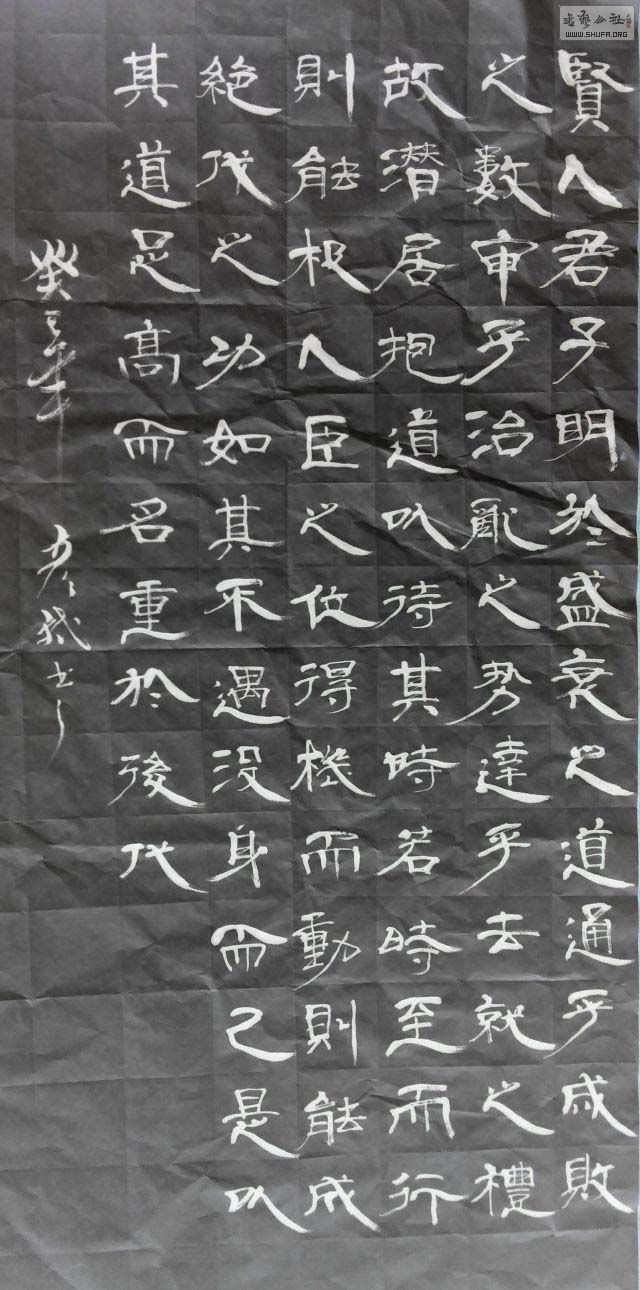 書藝公社
WWW.SHUFA.ORG
賢人君子明於盛衰之道通乎成敗
之數審乎治亂之势達乎去就之禮
故潜居抱道以待其時若時至而行
則能极人臣之位得機而動則能成
絶代之功如其不遇没身而己是以
其道足高而名重於後代
癸巳年 书